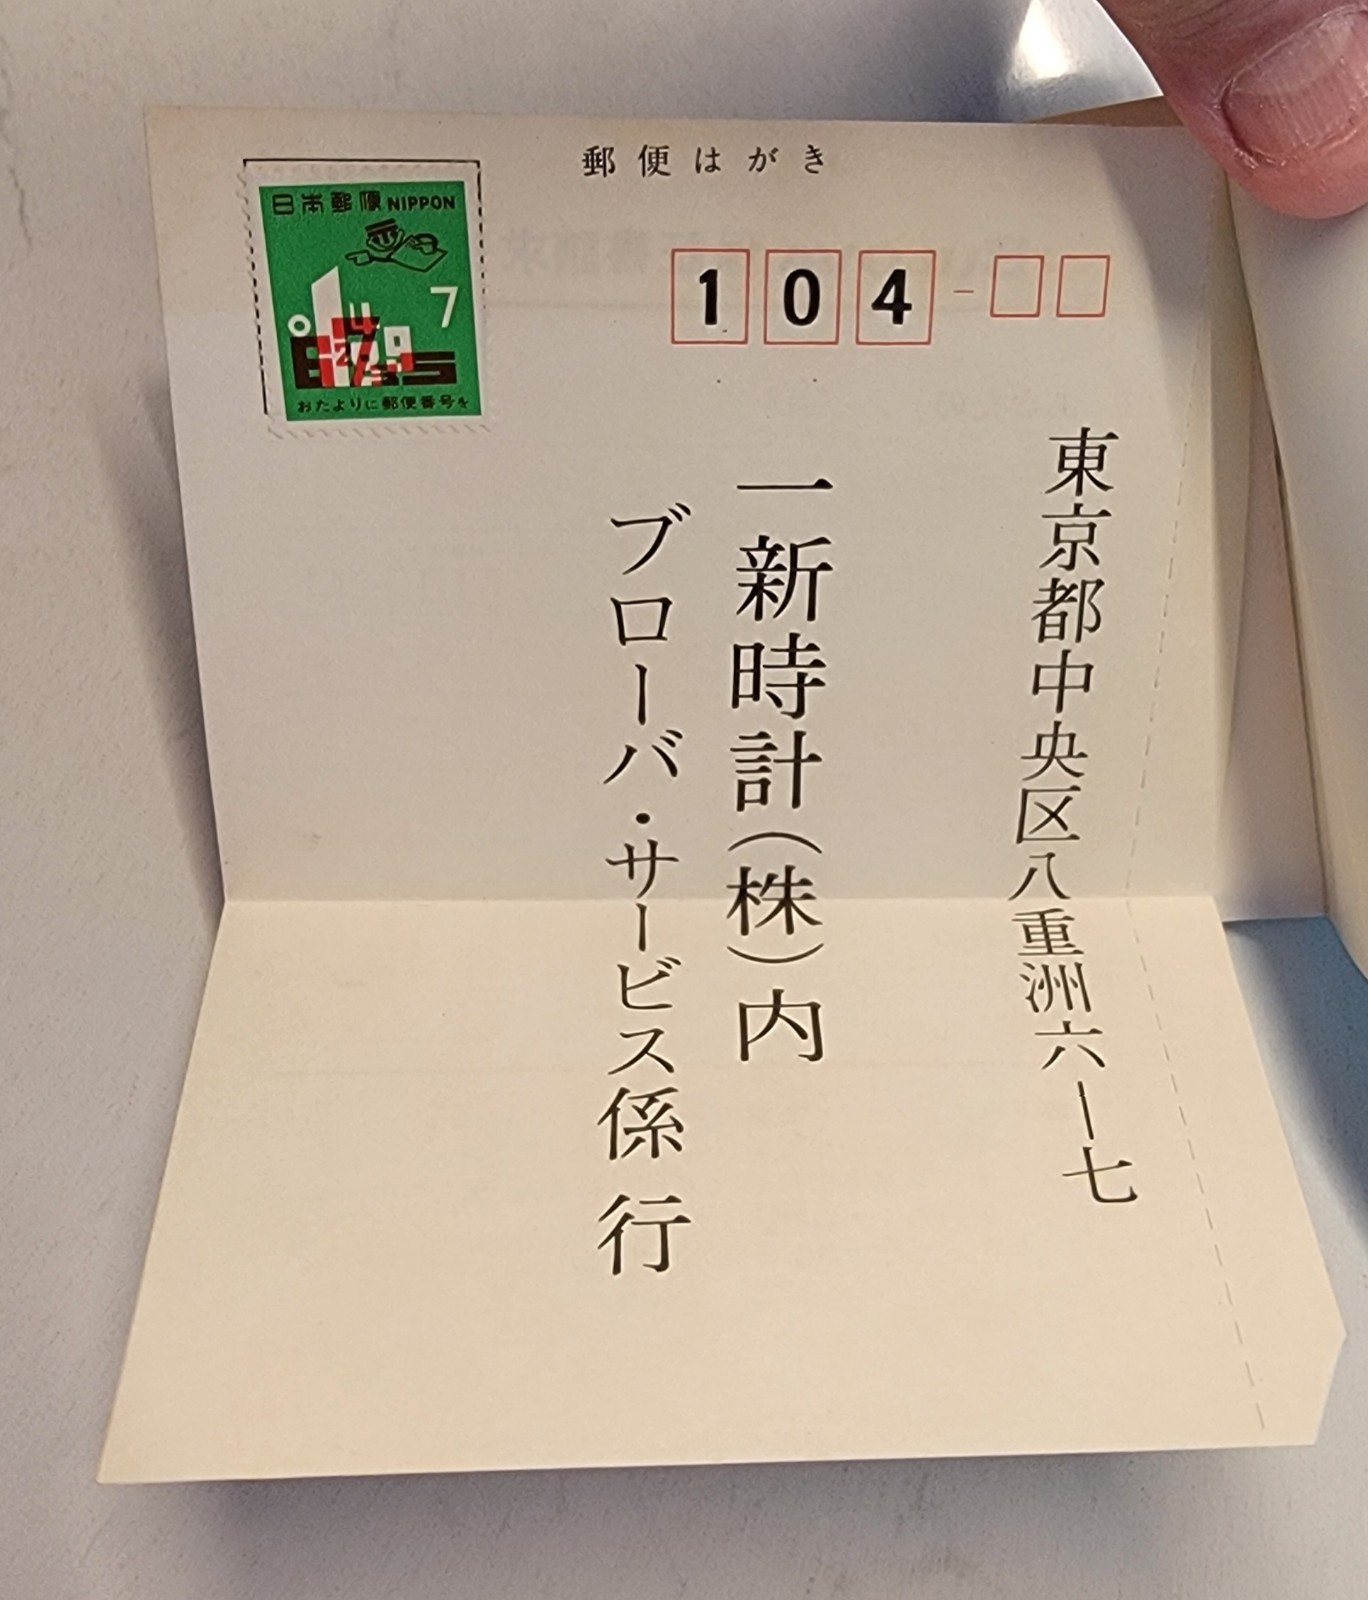 郵便はがき
日本郵便 NIPPON
7
おたよりに郵便番号を
104-
東京都中央区八重洲六ー七
一新時計(株)内
ブローバ・サービス係 行